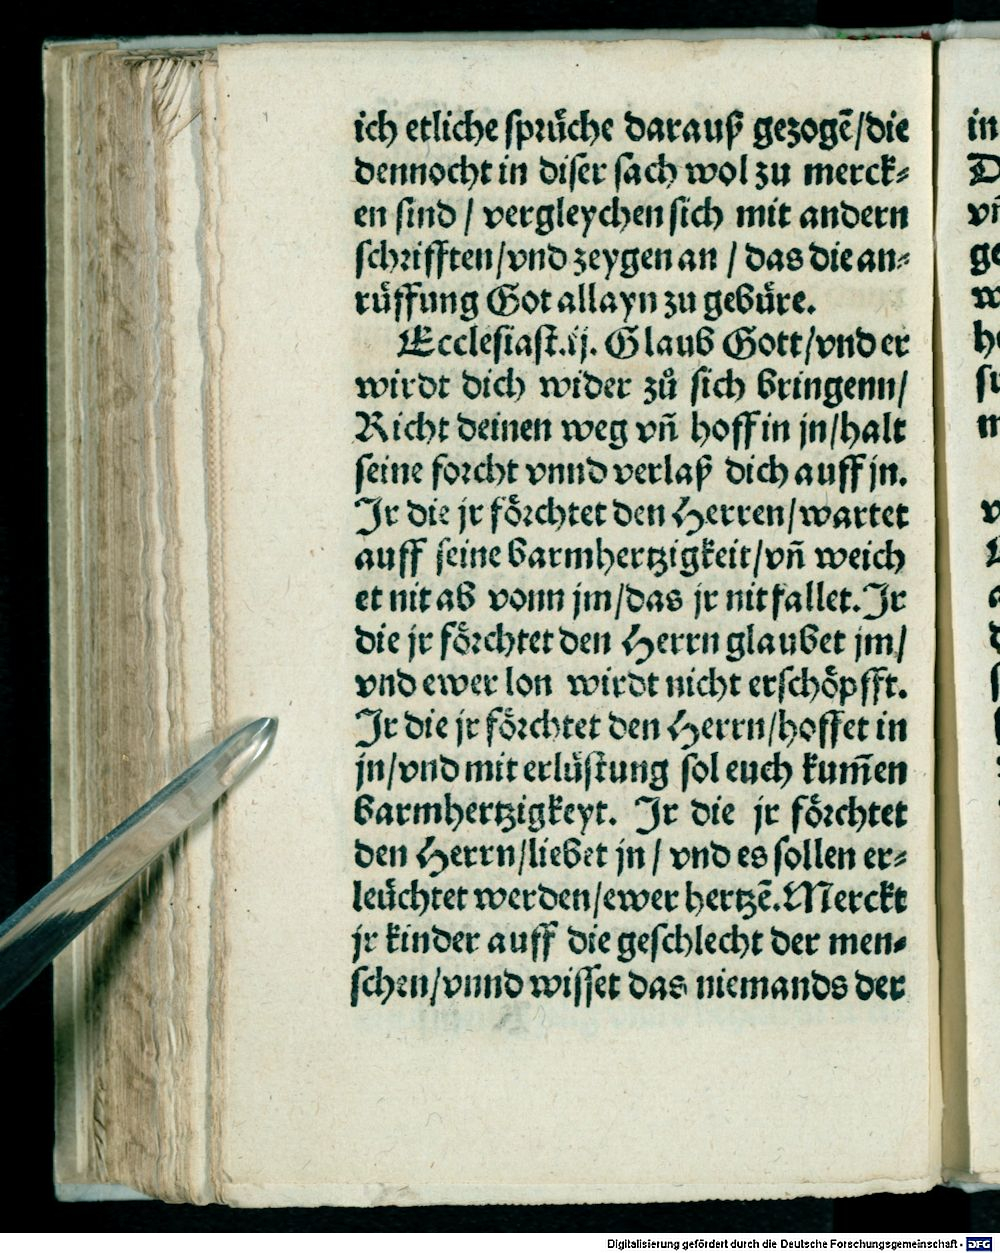 ich etliche sprüche darauß gezogẽ/die
dennocht in diser sach wol zu merck⸗
en sind / vergleychen sich mit andern
schrifften/vnd zeygen an / das die an⸗
rüffung Got allayn zu gebüre.
Ecclesiast.ij. Glaub Gott/vnd er
wirdt dich wider zů sich bringenn/
Richt deinen weg vñ hoff in jn/halt
seine forcht vnnd verlaß dich auff jn.
Jr die jr förchtet den Herren/wartet
auff seine barmhertzigkeit/vñ weich
et nit ab vonn jm/das jr nit fallet. Jr
die jr förchtet den Herrn glaubet jm/
vnd ewer lon wirdt nicht erschöpfft.
Jr die jr förchtet den Herrn/hoffet in
jn/vnd mit erlüstung sol euch kum̃en
barmhertzigkeyt. Jr die jr förchtet
den Herrn/liebet jn / vnd es sollen er⸗
leüchtet werden/ewer hertzẽ. Merckt
jr kinder auff die geschlecht der men⸗
schen/vnnd wisset das niemands der
in
D
vñ
ge
w
Digitalisierung gefördert durch die Deutsche Forschungsgemeinschaft - DFG